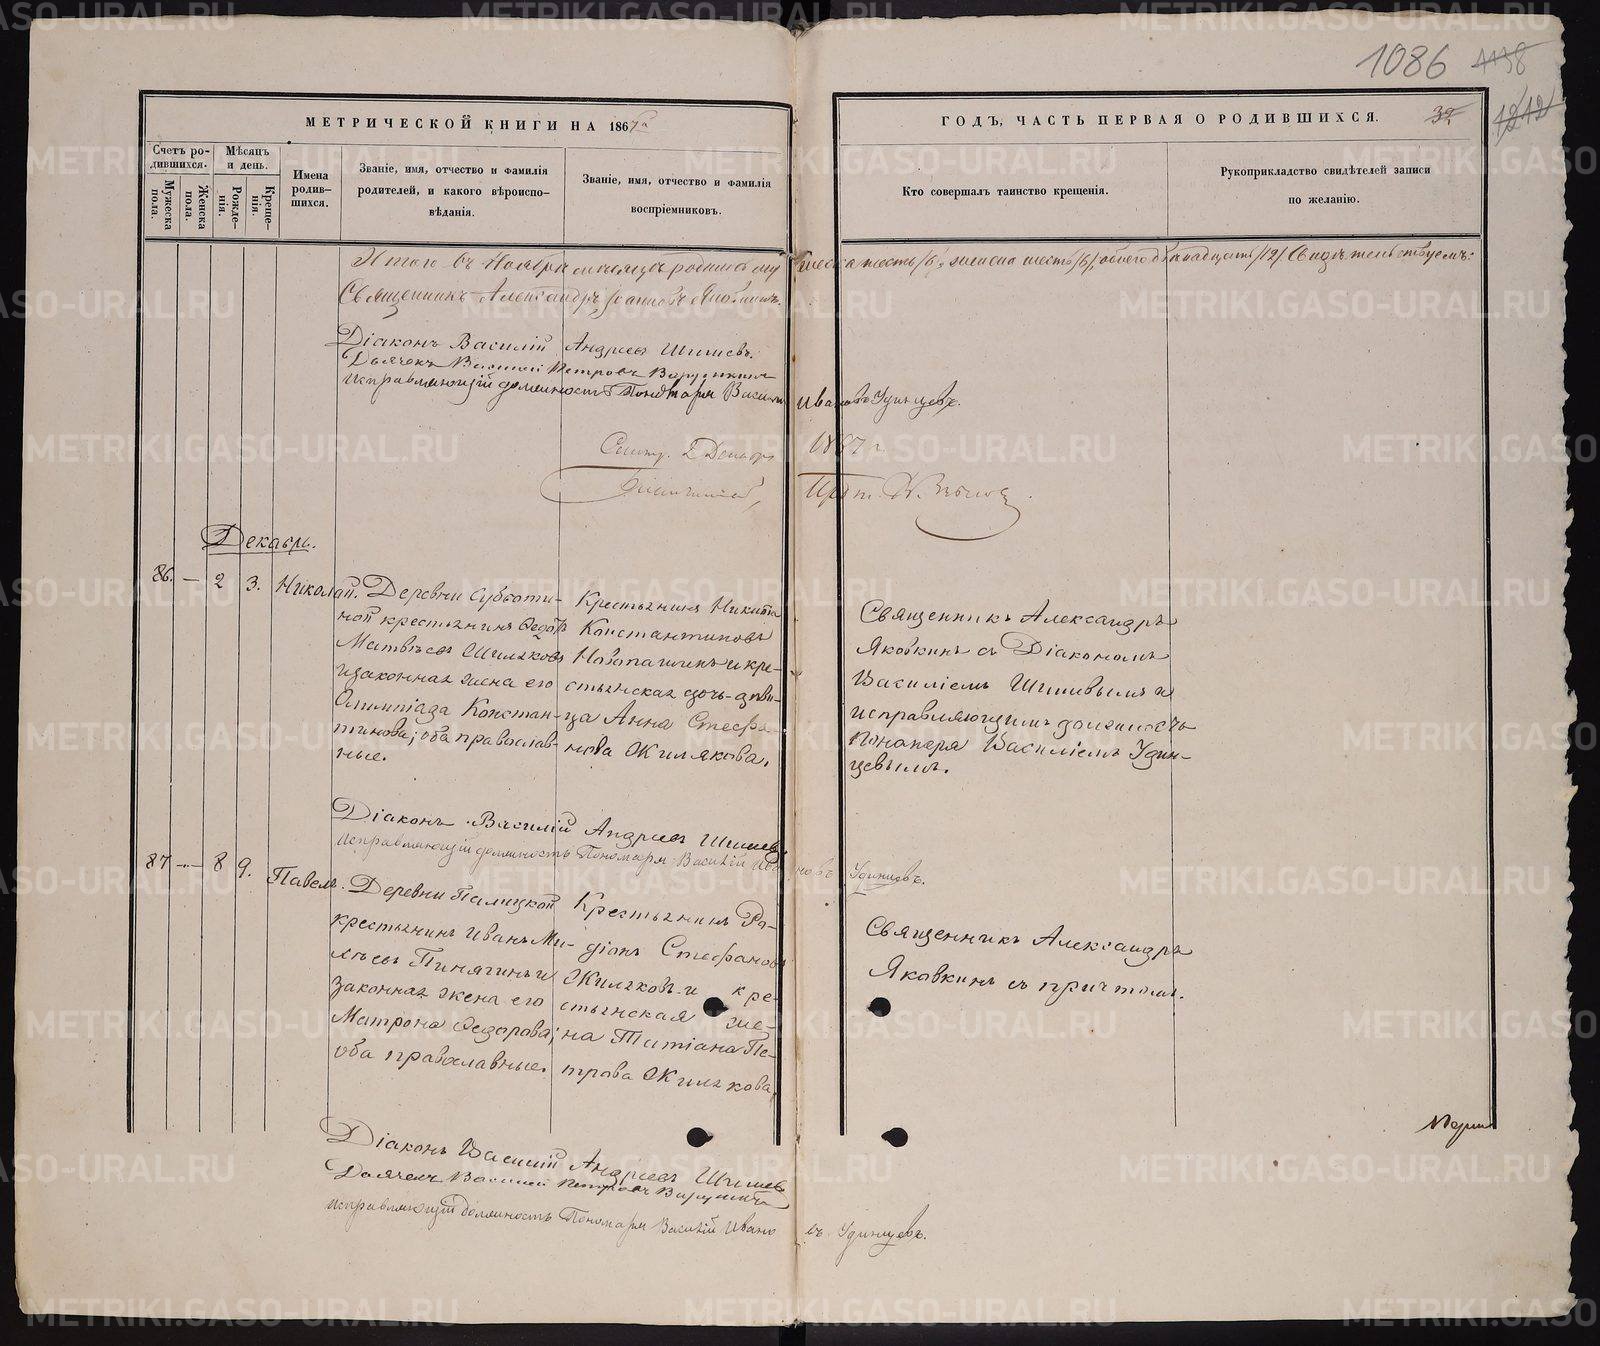 1086 1138
1212
МЕТРИЧЕСКОЙ КНИГИ НА 1867й
ГОДЪ, ЧАСТЬ ПЕРВАЯ О РОДИВШИХСЯ.
37.
Счетъ родившихся.
Мужеска пола.
Женска пола.
Мѣсяцъ и день.
Рожденія.
Крещенія.
Имена родившихся.
Званіе, имя, отчество и фамилія
родителей, и какого вѣроиспо-
вѣданія.
Званіе, имя, отчество и фамилія
воспріемниковъ.
Кто совершалъ таинство крещенія.
Рукоприкладство свидѣтелей записи
по желанію.
Итого въ Ноябрѣ мѣсяцѣ родилось мужеска шесть /6/, женска шесть /6/, обоего двѣнадцать /12/ Свидѣтельствуемъ:
Священникъ Александръ Іоанновъ Яковкинъ.
Діаконъ Василій Андреевъ Шишевъ.
Дьячекъ Василій Петровъ
Исправляющій должность Пономаря Василій Ивановъ Удинцевъ.
2 Декабря 1867 г
Декабрь.
86. — 2 3. Николай.
Деревни Субботи-
ной крестьянинъ Ѳедотъ
Матвѣевъ Шиляковъ
и законная жена его
Олимпіада Констан-
тинова; оба православ-
ные.
Крестьянинъ Никита
Константиновъ
Новопашинъ и кре-
стьянская дочь-дѣви-
ца Анна Стефа-
нова Жилякова.
Священникъ Александръ
Яковкинъ съ Діакономъ
Василіемъ Шишевымъ и
исправляющимъ должность
Пономаря Василіемъ Удин-
цевымъ.
Діаконъ Василій Андреевъ Шишевъ
Исправляющій должность Пономаря Василій Ивановъ Удинцевъ.
87 — 8 9. Павелъ.
Деревни Палицкой
крестьянинъ Иванъ Ми-
Пинягинъ и
законная жена его
Матрона Ѳедорова;
оба православные.
Крестьянинъ Ро-
діонъ Стефановъ
Жиляковъ и кре-
стьянская же-
на Татіана Пе-
трова Жилякова.
Священникъ Александръ
Яковкинъ съ причтомъ.
Діаконъ Василій Андреевъ Шишевъ
Дьячекъ Василій Петровъ
Исправляющій должность Пономаря Василій Ивановъ Удинцевъ.
METRIKI.GASO-URAL.RU